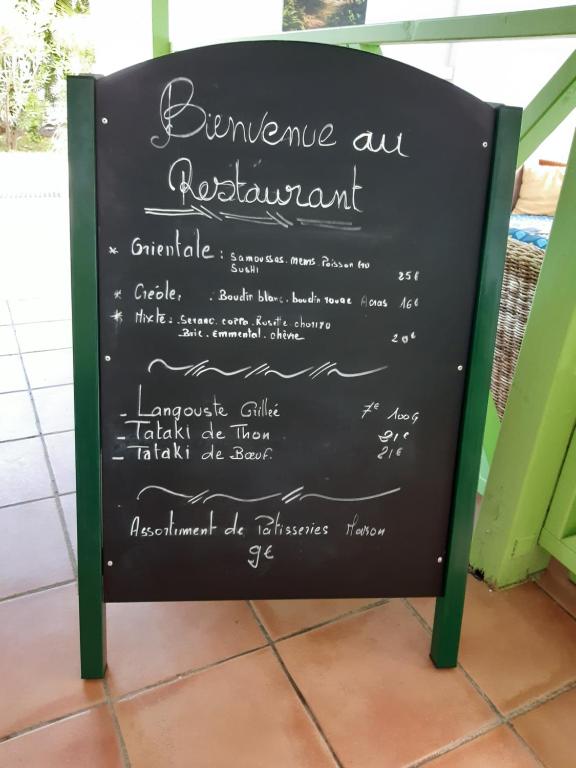 Bienvenue au
Restaurant
* Orientale : Samoussas. nems. Poisson
Sushi 25€
* Créole, . Boudin blanc. boudin rouge Acras 16€
* Mixte : Serano. coppa. Rosette. chorizo
Brie. Emmental. chèvre 20€
- Langouste Grillée 7€ 100G
- Tataki de Thon 21€
- Tataki de Bœuf. 21€
Assortiment de Patisseries Maison
9€